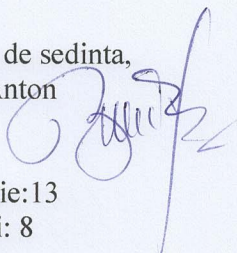 de sedinta,
Anton
ie:13
i: 8